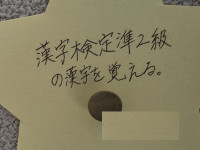 漢字検定準2級
の漢字を覚える。